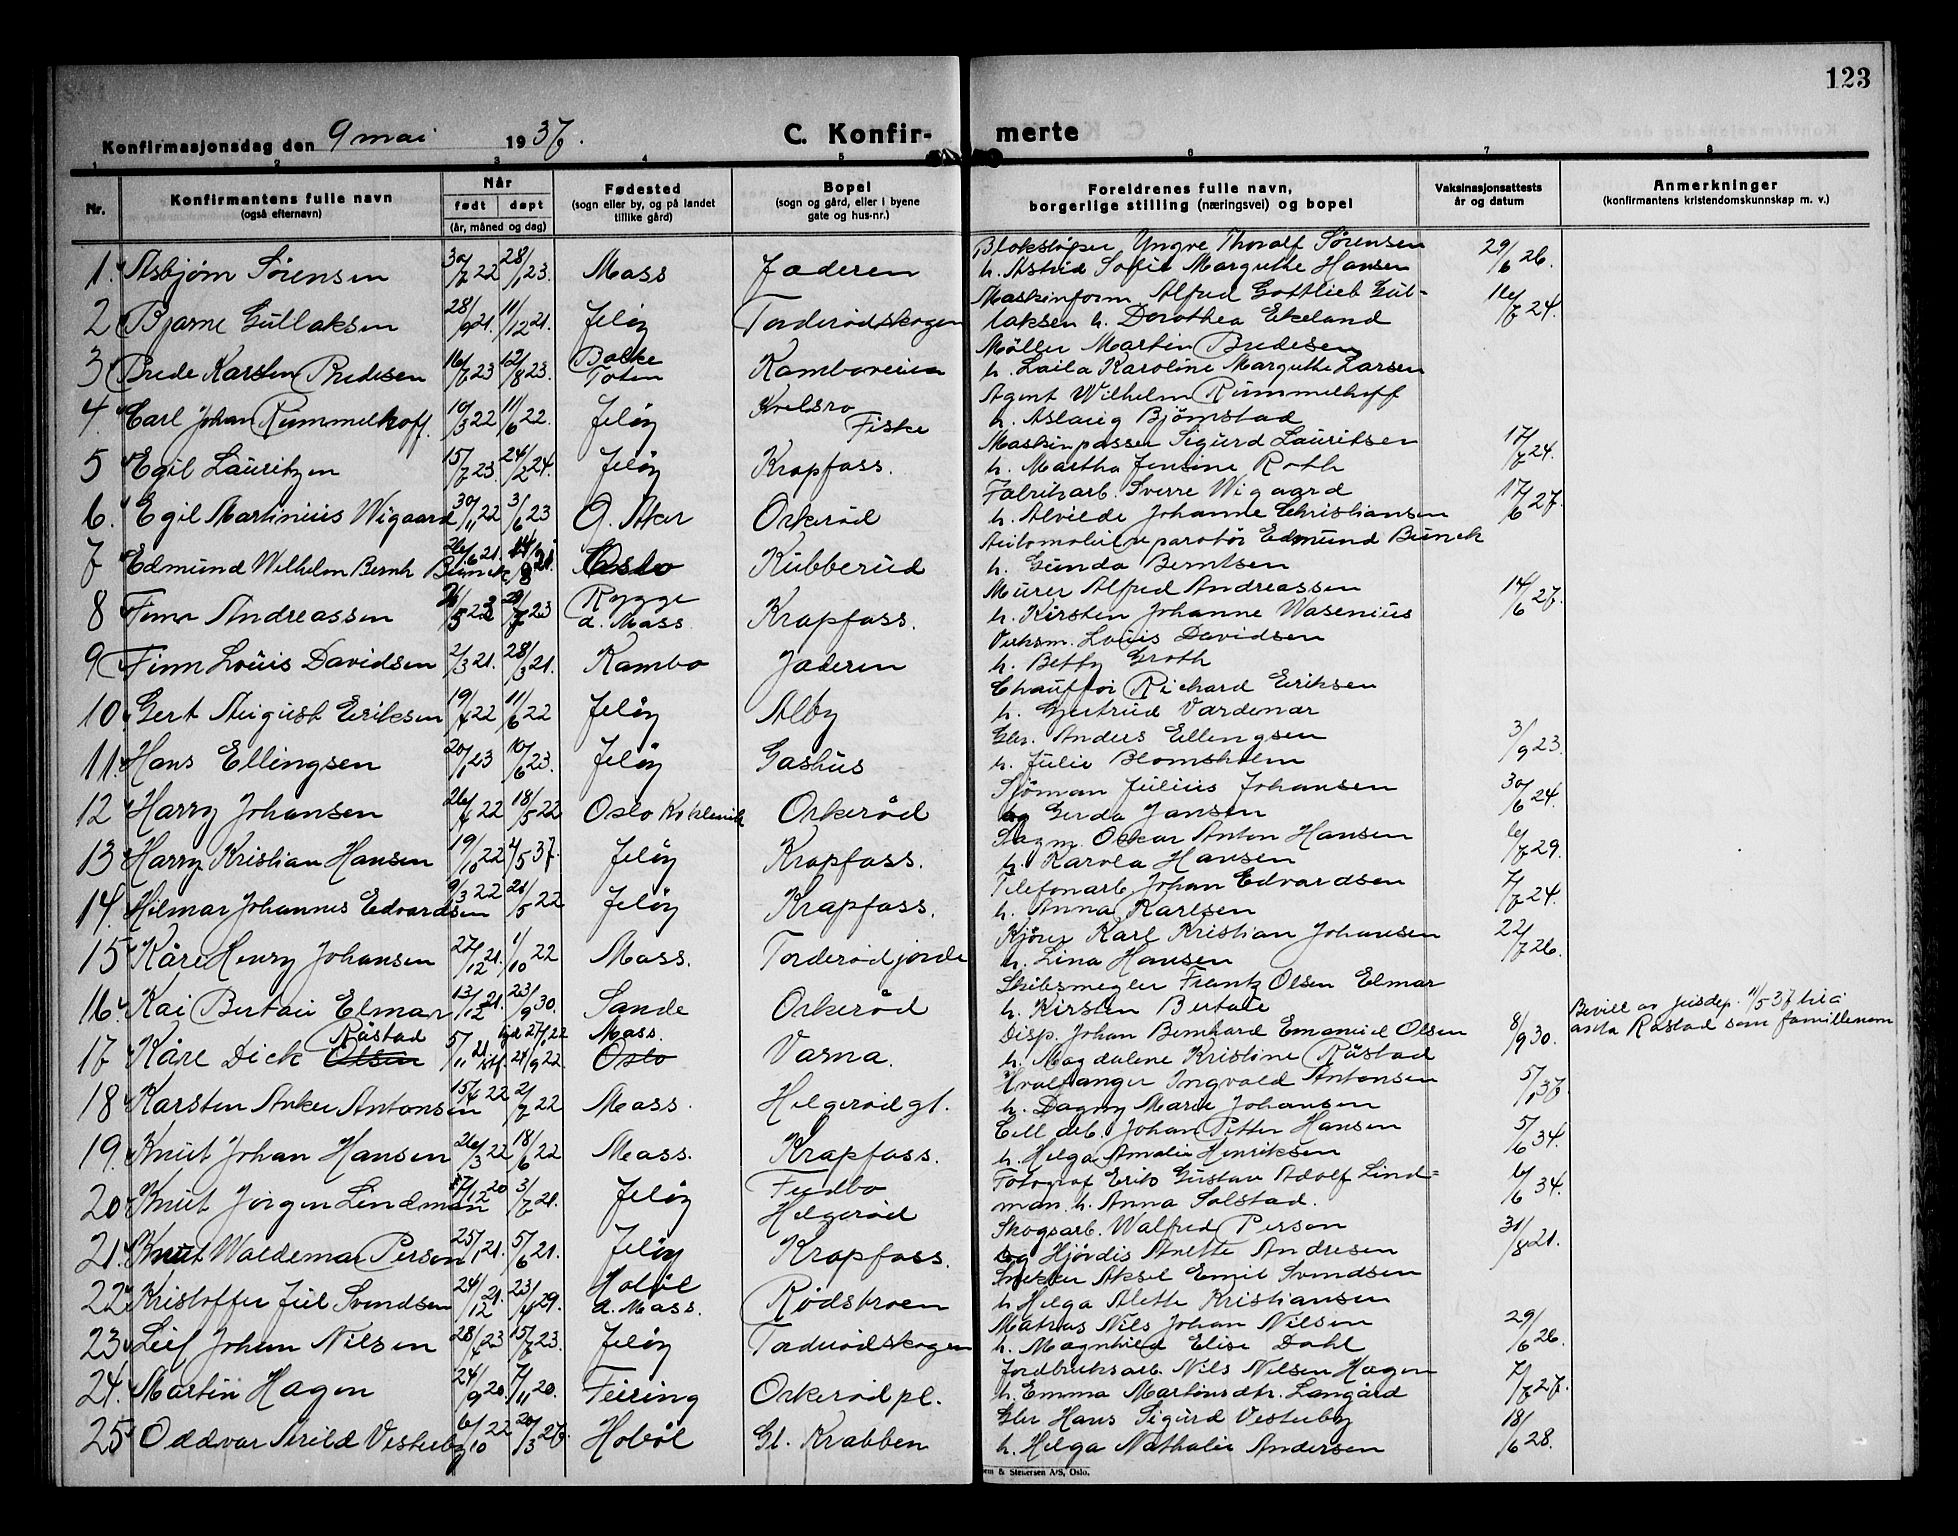 123
Konfirmasjonsdag den 9 mai 1937. C. Konfir- merte
1 2 3 4 5 6 7 8
Nr. Konfirmantens fulle navn (også efternavn) Når født døpt (år, måned og dag) Fødested (sogn eller by, og på landet tillike gård) Bopel (sogn og gård, eller i byene gate og hus-nr.) Foreldrenes fulle navn, borgerlige stilling (næringsvei) og bopel Vaksinasjonsattests år og datum Anmerkninger (konfirmantens kristendomskunnskap m. v.)
1. Asbjørn Sørensen 30/7 22 28/1 23. Moss Jæderen Yngve Thoralf Sørensen 29/6 26.
h. Astrid Sofie Margrethe Hansen
2 Bjarne Gullaksen 28/9 21. 11/12 21. Jeløy Torderødskogen Maskinform Alfred Gottlieb Gul- 16/7 24.
laksen h. Dorothea Ekeland
3 Brede Karsten Bredesen 16/7 23 12/8 23. Balke Toten Kamboveien Møller Martin Bredesen
h. Laila Karoline Margrethe Larsen
4. Carl Johan Rummelhoff. 10/3 22 11/6 22. Jeløy Kvelsro Fiske Agent Wilhelm Rummelhoff
h. Aslaug Bjørnstad
5 Egil Lauritzen 15/7 23. 24/2 24. Jeløy Krapfoss. Maskinpasser Sigurd Lauritsen 17/7 24.
h. Martha Jensine Roth
6. Egil Martinius Wigaard 30/11 22 3/6 23 Ø. Aker Orkerød Fabrikarb. Sverre Wigaard 17/6 27.
h. Alvilde Johanne Christiansen
7 Edmund Wilhelm Bernh Bunck 26/6 21. 14/8 21. Oslo Kubberud Automobilreparatør Edmund Bunck
h. Gunda Berntsen
8 Finn Andreassen 5 23 7 23 Rygge d. Moss Krapfoss. Murer Alfred Andreassen 14/6 27.
h. Kirsten Johanne Wasenius
9 Finn Louis Davidsen 2/3 21. 28/3 21. Kambo Jæderen Verksm. Louis Davidsen
h. Betty Groth
10. Gert August Eriksen 19/4 22 11/6 22 Jeløy Alby Chauffør Richard Eriksen
h. Gertrud Vardenær
11. Hans Ellingsen 20/1 23 10/6 23. Jeløy Gashus Gbr. Anders Ellengsen 3/9 23.
h. Julie Blomsholm
12 Harry Johansen 26/4 22 18/5 22 Oslo Orkerød Sjøman Julius Johansen 30/6 24.
og Gerda Jansen
13 Harry Kristian Hansen 19/10 22 4/5 37. Jeløy Krapfoss. Sagm. Oskar Anton Hansen 6/7 29.
h. Karola Hansen
14. Hilmar Johannes Edvardsen 9/3 22 21/5 22 Jeløy Krapfoss. Telefonarb. Johan Edvardsen 7/7 24.
h. Anna Karlsen
15 Kåre Henry Johansen 27/12 21. 1/10 22 Moss. Torderødjorde Kjører Karl Kristian Johansen 22/7 26.
h. Lina Hansen
16. Kai Bertau Elmar 13/12 21. 23/9 30. Sande Orkerød Skibsmegler Frantz Olsen Elmar
h. Kirsten Bertau
17 Kåre Dick Olsen Råstad 5/11 21 27/1 22 24/9 22. Moss. Oslo Varna. Disp. Johan Bernhard Emanuel Olsen 8/9 30. Bevill av jusdep. 11/5 37 til å
h. Magdalene Kristine Råstad anta Råstad som famillenavn
18 Karsten Anker Antonsen 15/4 22 2/7 22 Moss. Helgerød gt. Hvalfanger Ingvald Antonsen 5/1 37.
h. Dagny Marie Johansen
19. Knut Johan Hansen 26/3 22 18/6 22 Moss. Krapfoss. Cell. arb. Johan Petter Hansen 5/6 34.
h. Helga Amalie Henriksen
20 Knut Jørgen Lindman 17/12 20 3/7 21. Jeløy Helgerød Fotograf Erik Gustav Adolf Lind= 6/6 34.
man. h. Anna Solstad.
21. Knut Waldemar Person 25/1 21. 5/6 21. Jeløy Krapfoss. Skogsarb. Walfred Person 31/8 21.
og Hjørdis Anette Andresen
22 Kristoffer Juel Svendsen 24/12 21. 23/4 29. Hobøl d. Moss. Rødskroen Snekker Aksel Emil Svendsen
h. Helga Alette Kristiansen
23 Leif Johan Nilsen 28/4 23 15/7 23. Jeløy Torderødskogen Matros Nils Johan Nilsen 29/6 26.
h. Magnhild Elise Dahl
24. Martin Hagen 24/9 20. 7/11 20. Feiring Orkerød pl. Jordbruksarb. Nils Nilsen Hagen 7/7 27.
h. Emma Martinsdtr. Langård
25 Oddvar Arild Vesterby 6/10 22 20/3 27. Hobøl Gl. Krabben Gbr Hans Sigurd Vesterby 18/6 28.
h. Helga Nathalie Andersen
& Stenersen A/S, Oslo.